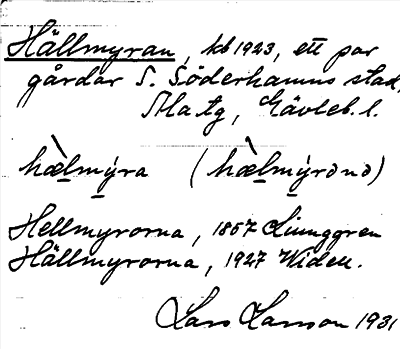 Hällmyran, kb 1923, ett par
gårdar S. Söderhamns stad,
Ma tg, Gävleb. l.
hæ̀lmýra (hæ̀lmýrənə)
Hellmyrorna, 1857 Liunggren
Hällmyrorna, 1927 Widell.
Lars Larsson 1931